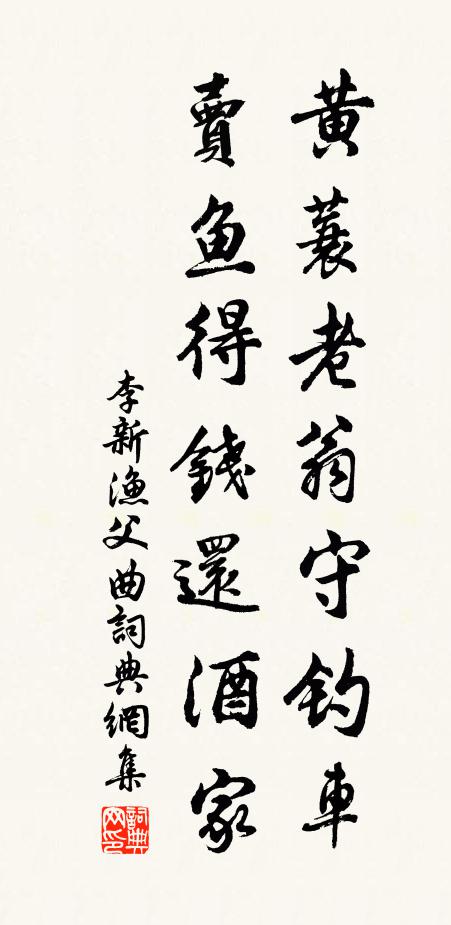 黄蓑老翁守钓車
賣魚得錢還酒家
李新漁父曲詞典網集
詞典网印